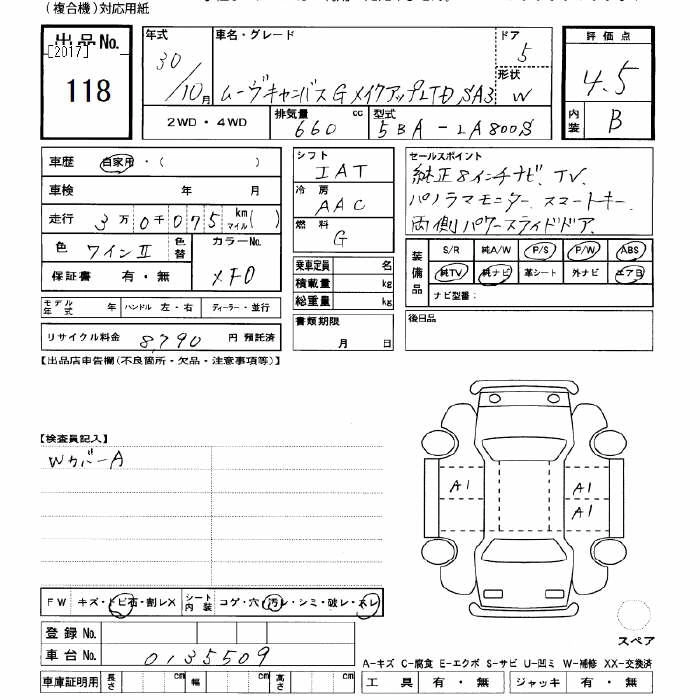 (複合機)対応用紙
出品No. [2017] 118
年式 30/10月
車名・グレード ムーヴキャンバス G メイクアップ LTD SA3
ドア 5
形状 W
評価点 4.5
内装 B
2WD・4WD
排気量 660 cc
型式 5BA-LA800S
車歴 自家用・( )
車検 年 月
走行 3万0千075 km マイル( )
色 ワインⅡ 色替
カラーNo. XF0
保証書 有・無
モデル年式 年 ハンドル 左・右 ディーラー・並行
リサイクル料金 8,790 円 預託済
シフト IAT
冷房 AAC
燃料 G
乗車定員 名
積載量 kg
総重量 kg
書類期限
月 日
セールスポイント
純正8インチナビ、TV、
パノラマモニター、スマートキー、
両側パワースライドドア、
装備品 S/R 純A/W P/S P/W ABS
純TV 純ナビ 革シート 外ナビ エア日
ナビ型番:
後日品
【出品店申告欄(不良箇所・欠品・注意事項等)】
【検査員記入】
WカバーA
A1
A1
A1
FW キズ・トビ石・割レX シート内装 コゲ・穴・汚レ・シミ・破レ・スレ
登録No.
車台No. 0135509
車庫証明用 長さ cm 幅 cm 高さ cm
スペア
A-キズ C-腐食 E-エクボ S-サビ U-凹ミ W-補修 XX-交換済
工具 有・無 ジャッキ 有・無